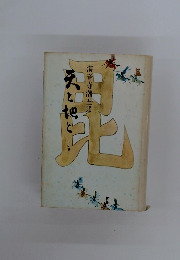 毘
海音寺潮五郎
天と地と